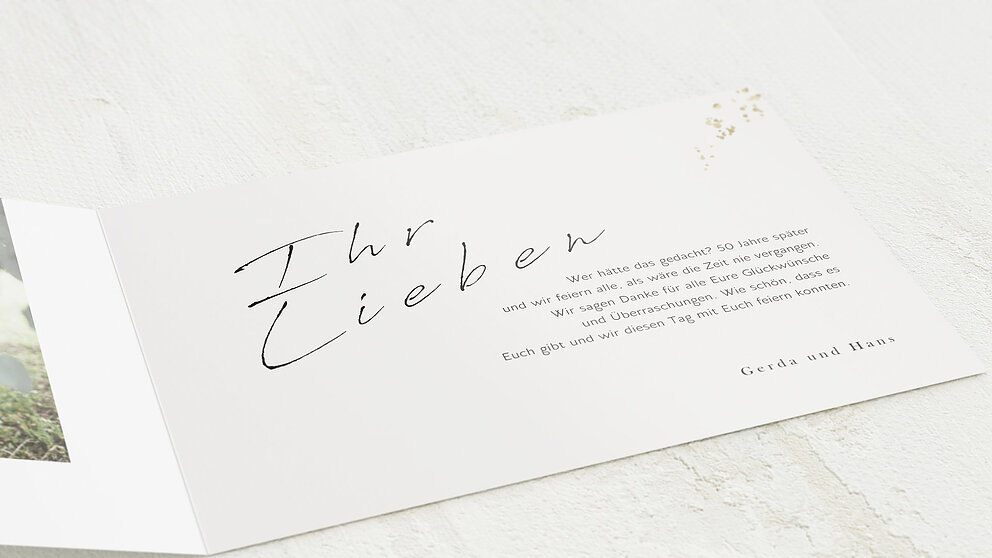 Ihr
Lieben
Wer hätte das gedacht? 50 Jahre später
und wir feiern alle, als wäre die Zeit nie vergangen.
Wir sagen Danke für alle Eure Glückwünsche
und Überraschungen. Wie schön, dass es
Euch gibt und wir diesen Tag mit Euch feiern konnten.
Gerda und Hans